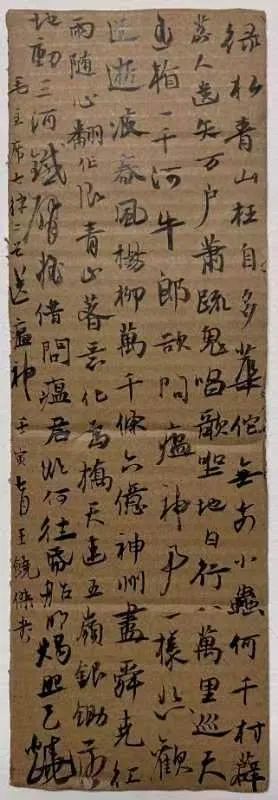 绿水青山枉自多華佗無奈小蟲何千村薜
荔人遗矢万户萧疏鬼唱歌坐地日行八萬里巡天
遥看一千河牛郎欲问瘟神事一樣悲歡
逐逝波春風楊柳萬千條六億神州盡舜尧红
雨随心翻作浪青山着意化為橋天连五嶺銀鋤落
地動三河鐵臂摇借問瘟君欲何往纸船明燭照天燒
毛主席七律二首送瘟神 壬寅 王 書